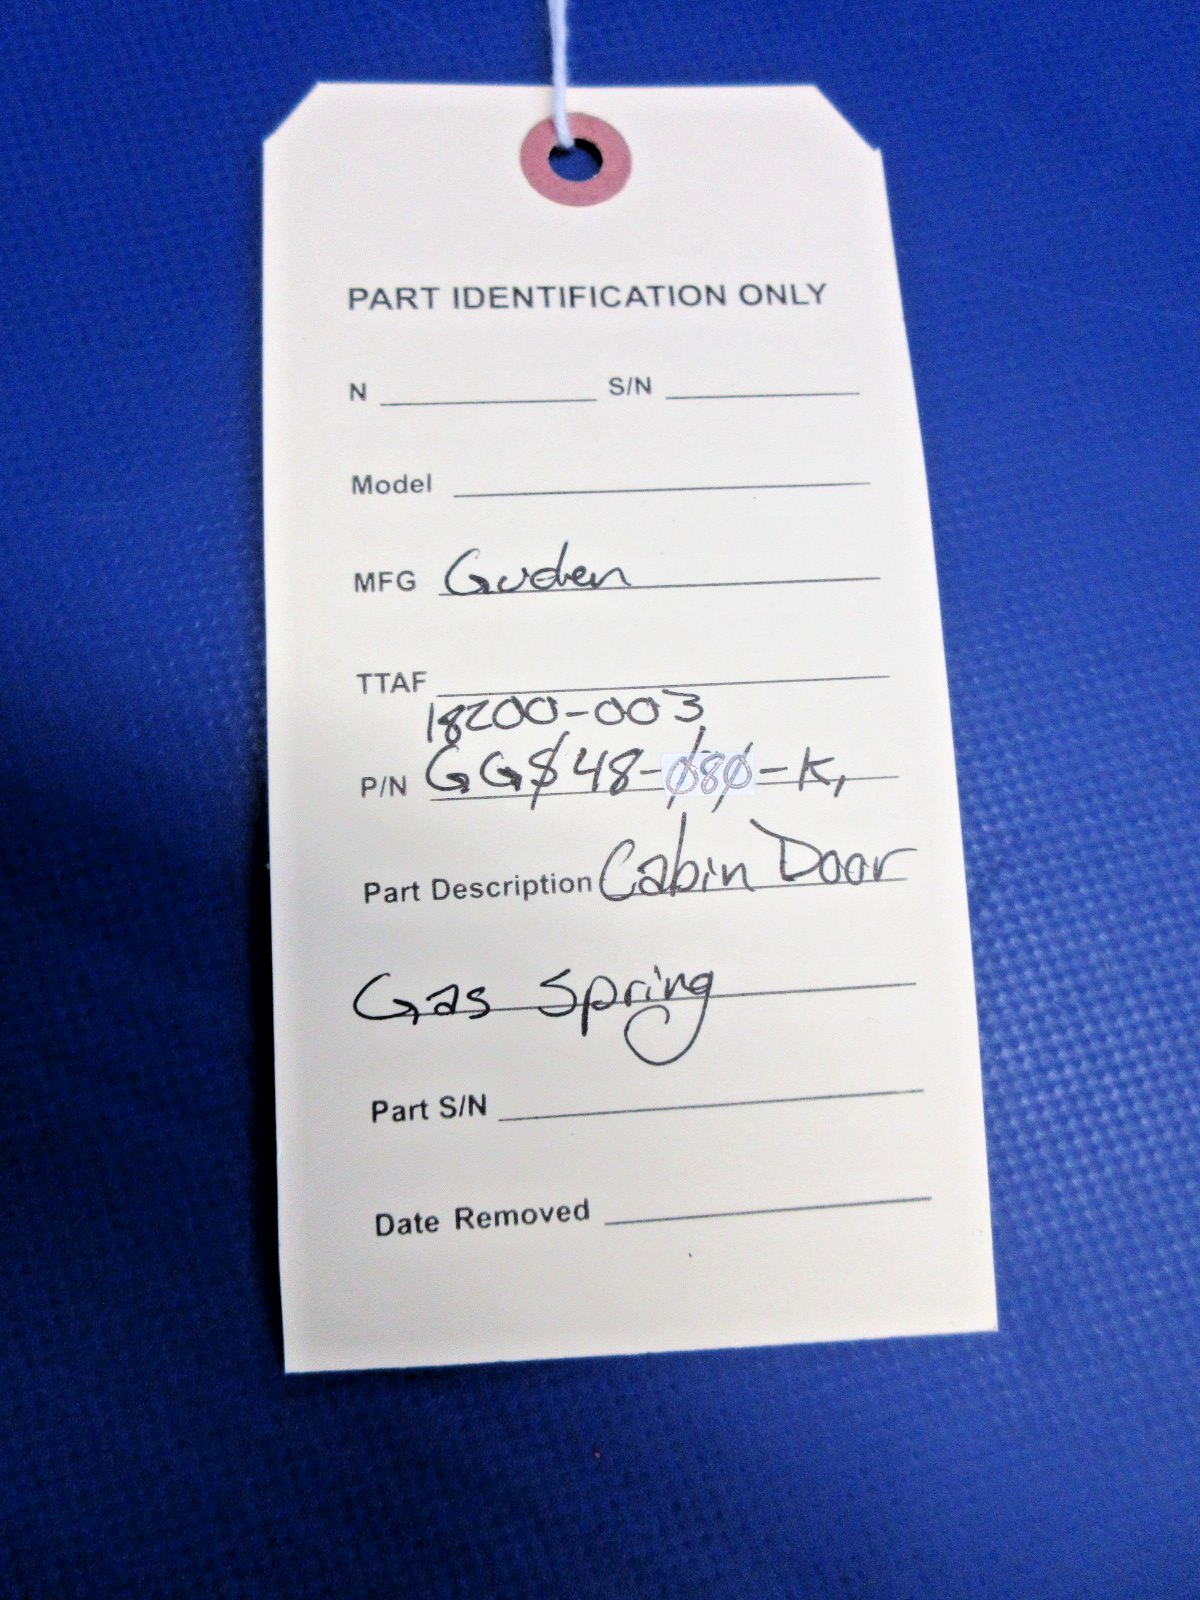 PART IDENTIFICATION ONLY
N S/N
Model
MFG Guden
TTAF
18200-003
P/N GGS48-080-K,
Part Description Cabin Door
Gas Spring
Part S/N
Date Removed